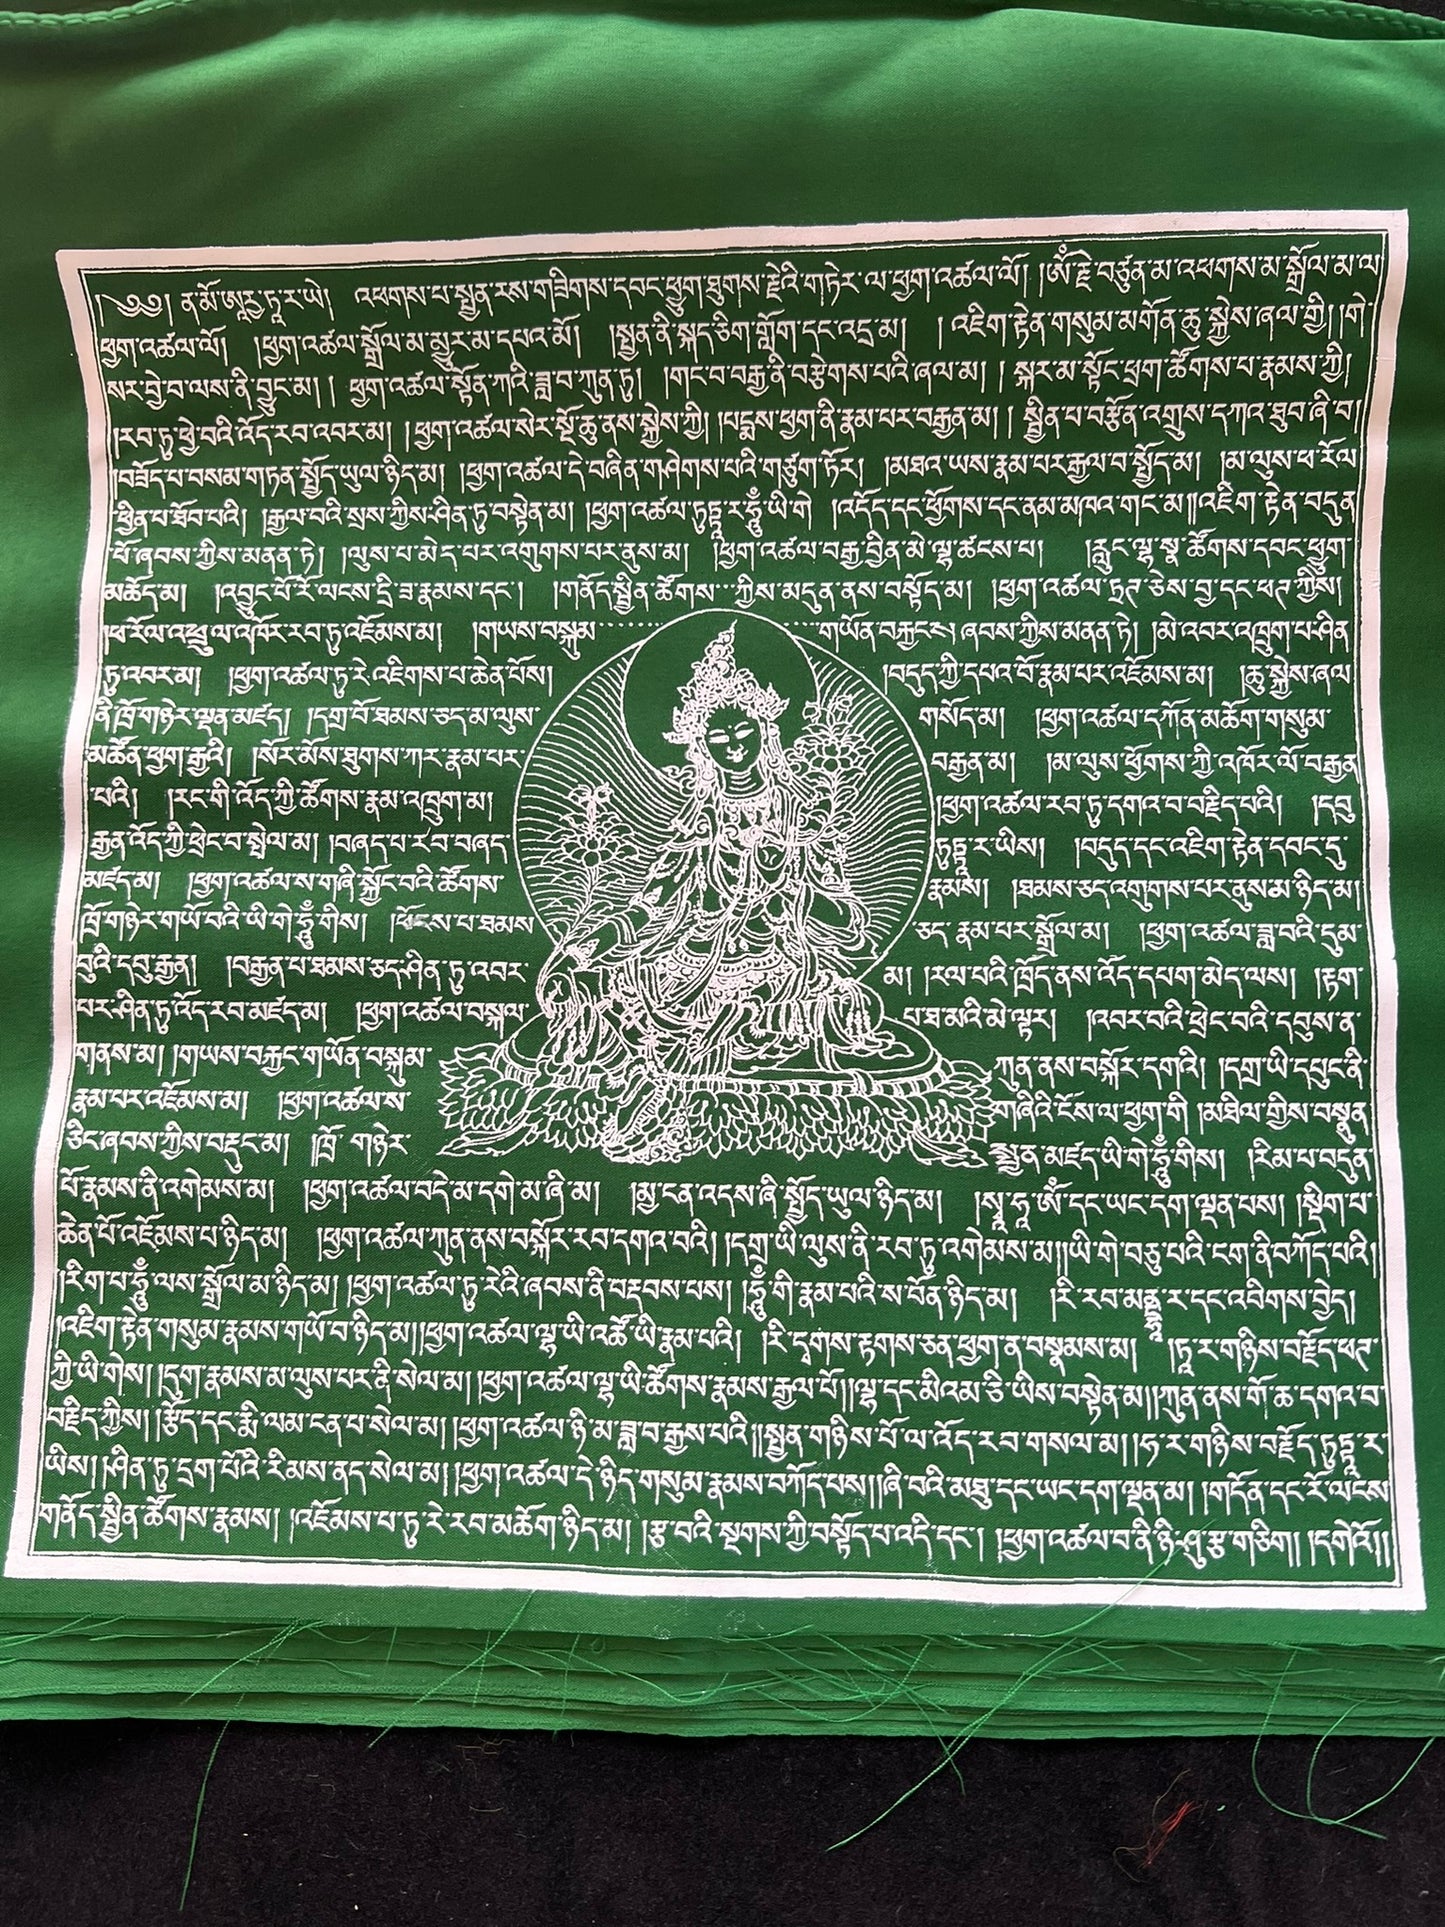 ༄༅། ན་མོ་ཨཱརྱ་ཏཱ་ར་ཡེ། འཕགས་པ་སྤྱན་རས་གཟིགས་དབང་ཕྱུག་ཐུགས་རྗེའི་གཏེར་ལ་ཕྱག་འཚལ་ལོ། །ཨོཾ་རྗེ་བཙུན་མ་འཕགས་མ་སྒྲོལ་མ་ལ
ཕྱག་འཚལ་ལོ། །ཕྱག་འཚལ་སྒྲོལ་མ་མྱུར་མ་དཔའ་མོ། །སྤྱན་ནི་སྐད་ཅིག་གློག་དང་འདྲ་མ། །འཇིག་རྟེན་གསུམ་མགོན་ཆུ་སྐྱེས་ཞལ་གྱི། །གེ་
སར་བྱེ་བ་ལས་ནི་བྱུང་མ། །ཕྱག་འཚལ་སྟོན་ཀའི་ཟླ་བ་ཀུན་ཏུ། །གང་བ་བརྒྱ་ནི་བརྩེགས་པའི་ཞལ་མ། །སྐར་མ་སྟོང་ཕྲག་ཚོགས་པ་རྣམས་ཀྱི།
།རབ་ཏུ་ཕྱེ་བའི་འོད་རབ་འབར་མ། །ཕྱག་འཚལ་སེར་སྔོ་ཆུ་ནས་སྐྱེས་ཀྱི། །པདྨས་ཕྱག་ནི་རྣམ་པར་བརྒྱན་མ། །སྦྱིན་པ་བརྩོན་འགྲུས་དཀའ་ཐུབ་ཞི་བ།
།བཟོད་པ་བསམ་གཏན་སྤྱོད་ཡུལ་ཉིད་མ། །ཕྱག་འཚལ་དེ་བཞིན་གཤེགས་པའི་གཙུག་ཏོར། །མཐའ་ཡས་རྣམ་པར་རྒྱལ་བ་སྤྱོད་མ། །མ་ལུས་ཕ་རོལ
ཕྱིན་པ་ཐོབ་པའི། །རྒྱལ་བའི་སྲས་ཀྱིས་ཤིན་ཏུ་བསྟེན་མ། །ཕྱག་འཚལ་ཏུཏྟཱ་ར་ཧཱུྃ་ཡི་གེ །འདོད་དང་ཕྱོགས་དང་ནམ་མཁའ་གང་མ།།འཇིག་རྟེན་བདུན
པོ་ཞབས་ཀྱིས་མནན་ཏེ། །ལུས་པ་མེད་པར་འགུགས་པར་ནུས་མ། །ཕྱག་འཚལ་བརྒྱ་བྱིན་མེ་ལྷ་ཚངས་པ། །རླུང་ལྷ་སྣ་ཚོགས་དབང་ཕྱུག་
མཆོད་མ། །འབྱུང་པོ་རོ་ལངས་དྲི་ཟ་རྣམས་དང་། །གནོད་སྦྱིན་ཚོགས་་་ཀྱིས་མདུན་ནས་བསྟོད་མ། །ཕྱག་འཚལ་ཏྲཊ་ཅེས་བྱ་དང་ཕཊ་ཀྱིས།
།ཕ་རོལ་འཕྲུལ་འཁོར་རབ་ཏུ་འཇོམས་མ། །གཡས་བསྐུམ གཡོན་བརྐྱངས། ཞབས་ཀྱིས་མནན་ཏེ། །མེ་འབར་འཁྲུག་པ་ཤིན
ཏུ་འབར་མ། །ཕྱག་འཚལ་ཏུ་རེ་འཇིགས་པ་ཆེན་པོས། །བདུད་ཀྱི་དཔའ་བོ་རྣམ་པར་འཇོམས་མ། །ཆུ་སྐྱེས་ཞལ
ནི་ཁྲོ་གཉེར་ལྡན་མཛད། །དགྲ་བོ་ཐམས་ཅད་མ་ལུས་ གསོད་མ། །ཕྱག་འཚལ་དཀོན་མཆོག་གསུམ་
མཚོན་ཕྱག་རྒྱའི། །སོར་མོས་ཐུགས་ཀར་རྣམ་པར་ བརྒྱན་མ། །མ་ལུས་ཕྱོགས་ཀྱི་འཁོར་ལོ་བརྒྱན
པའི། །རང་གི་འོད་ཀྱི་ཚོགས་རྣམ་འཁྲུག་མ། །ཕྱག་འཚལ་རབ་ཏུ་དགའ་བ་བརྗིད་པའི། །དབུ
རྒྱན་འོད་ཀྱི་ཕྲེང་བ་སྤེལ་མ། །བཞད་པ་རབ་བཞད ཏུཏྟཱ་ར་ཡིས། །བདུད་དང་འཇིག་རྟེན་དབང་དུ་
མཛད་མ། །ཕྱག་འཚལ་ས་གཞི་སྐྱོང་བའི་ཚོགས་ རྣམས། །ཐམས་ཅད་འགུགས་པར་ནུས་མ་ཉིད་མ།
ཁྲོ་གཉེར་གཡོ་བའི་ཡི་གེ་ཧཱུྃ་གིས། །ཕོངས་པ་ཐམས ཅད་རྣམ་པར་སྒྲོལ་མ། །ཕྱག་འཚལ་ཟླ་བའི་དུམ་
བུའི་དབུ་རྒྱན། །བརྒྱན་པ་ཐམས་ཅད་ཤིན་ཏུ་འབར་ མ། །རལ་པའི་ཁྲོད་ནས་འོད་དཔག་མེད་ལས། །རྟག་
པར་ཤིན་ཏུ་འོད་རབ་མཛད་མ། །ཕྱག་འཚལ་བསྐལ་ པ་ཐ་མའི་མེ་ལྟར། །འབར་བའི་ཕྲེང་བའི་དབུས་ན་
གནས་མ། །གཡས་བརྐྱང་གཡོན་བསྐུམ་ ཀུན་ནས་བསྐོར་དགའི། །དགྲ་ཡི་དཔུང་ནི་
རྣམ་པར་འཇོམས་མ། །ཕྱག་འཚལ་ས་ གཞིའི་ངོས་ལ་ཕྱག་གི །མཐིལ་གྱིས་བསྣུན
ཅིང་ཞབས་ཀྱིས་བརྡུང་མ། །ཁྲོ་གཉེར་ སྤྱན་མཛད་ཡི་གེ་ཧཱུྃ་གིས། །རིམ་པ་བདུན
པོ་རྣམས་ནི་འགེམས་མ། །ཕྱག་འཚལ་བདེ་མ་དགེ་མ་ཞི་མ། །མྱ་ངན་འདས་ཞི་སྤྱོད་ཡུལ་ཉིད་མ། །སྭཱ་ཧཱ་ཨོཾ་དང་ཡང་དག་ལྡན་པས། །སྡིག་པ་
ཆེན་པོ་འཇོམས་པ་ཉིད་མ། །ཕྱག་འཚལ་ཀུན་ནས་བསྐོར་རབ་དགའ་བའི། །དགྲ་ཡི་ལུས་ནི་རབ་ཏུ་འགེམས་མ།།ཡི་གེ་བཅུ་པའི་ངག་ནི་བཀོད་པའི།
།རིག་པ་ཧཱུྃ་ལས་སྒྲོལ་མ་ཉིད་མ། །ཕྱག་འཚལ་ཏུ་རེའི་ཞབས་ནི་བརྡབས་པས། །ཧཱུྃ་གི་རྣམ་པའི་ས་བོན་ཉིད་མ། །རི་རབ་མནྡྷཱ་ར་དང་འབིགས་བྱེད།
།འཇིག་རྟེན་གསུམ་རྣམས་གཡོ་བ་ཉིད་མ།།ཕྱག་འཚལ་ལྷ་ཡི་འཚོ་ཡི་རྣམ་པའི། །རི་དྭགས་རྟགས་ཅན་ཕྱག་ན་བསྣམས་མ། །ཏཱ་ར་གཉིས་བརྗོད་ཕཊ་
ཀྱི་ཡི་གེས། །དུག་རྣམས་མ་ལུས་པར་ནི་སེལ་མ། །ཕྱག་འཚལ་ལྷ་ཡི་ཚོགས་རྣམས་རྒྱལ་པོ།།ལྷ་དང་མིའམ་ཅི་ཡིས་བསྟེན་མ།།ཀུན་ནས་གོ་ཆ་དགའ་བ་
བརྗིད་ཀྱིས། །རྩོད་དང་རྨི་ལམ་ངན་པ་སེལ་མ། །ཕྱག་འཚལ་ཉི་མ་ཟླ་བ་རྒྱས་པའི།།སྤྱན་གཉིས་པོ་ལ་འོད་རབ་གསལ་མ།།ཧ་ར་གཉིས་བརྗོད་ཏུཏྟཱ་ར་
ཡིས། །ཤིན་ཏུ་དྲག་པོའི་རིམས་ནད་སེལ་མ། །ཕྱག་འཚལ་དེ་ཉིད་གསུམ་རྣམས་བཀོད་པས།།ཞི་བའི་མཐུ་དང་ཡང་དག་ལྡན་མ། །གདོན་དང་རོ་ལངས
གནོད་སྦྱིན་ཚོགས་རྣམས། །འཇོམས་པ་ཏུ་རེ་རབ་མཆོག་ཉིད་མ། །རྩ་བའི་སྔགས་ཀྱི་བསྟོད་པ་འདི་དང་། །ཕྱག་འཚལ་བ་ནི་ཉི་ཤུ་རྩ་གཅིག། །དགེའོ།།